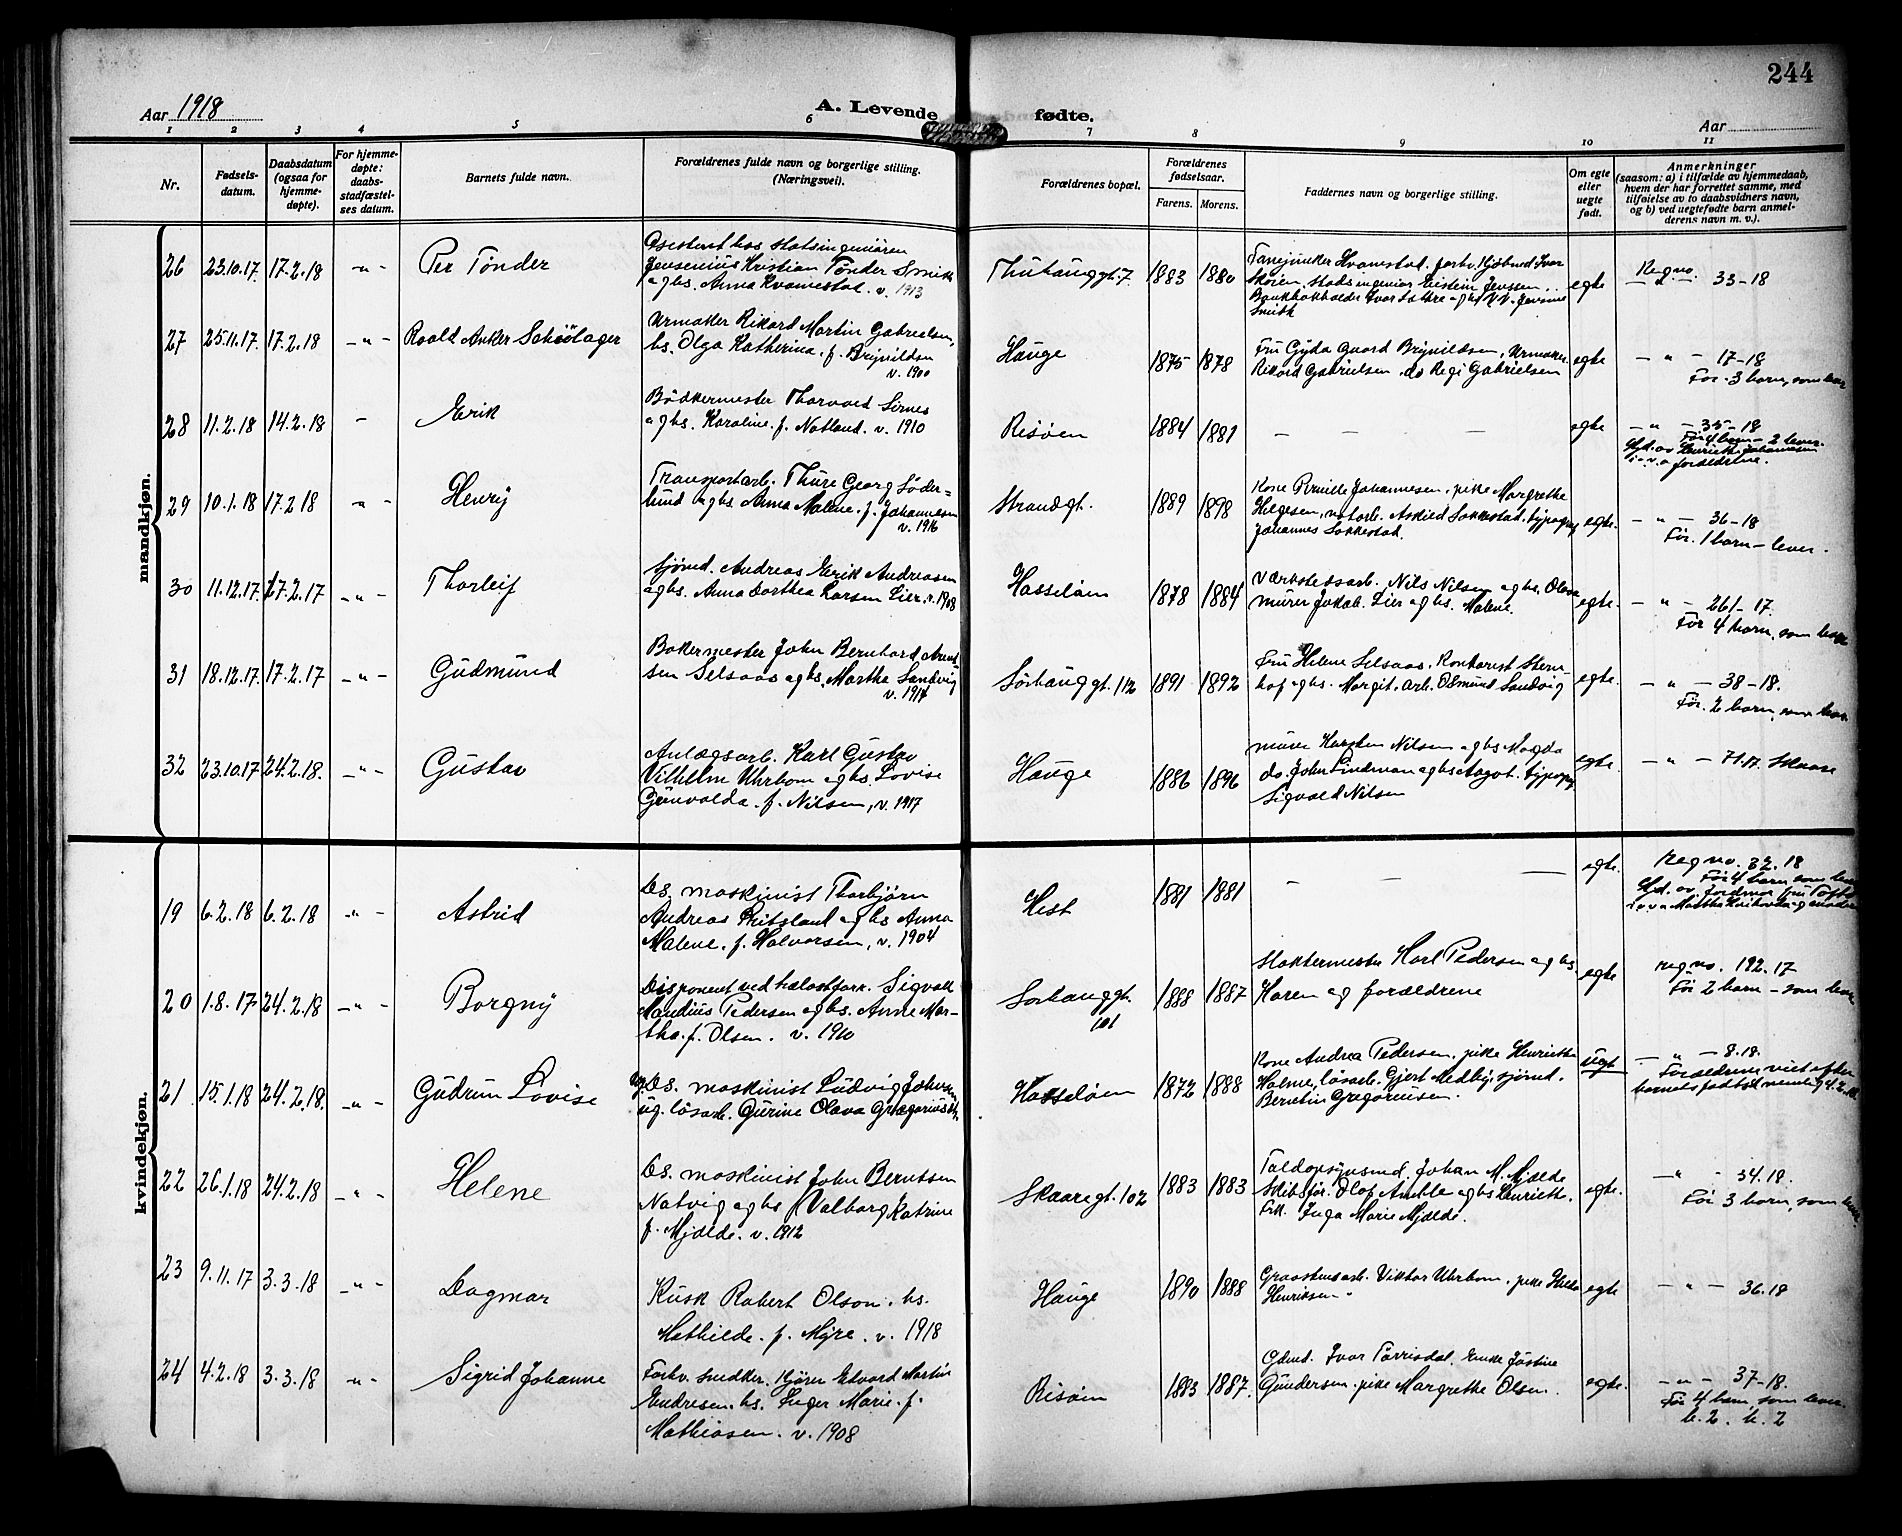 244
Aar 1918
A. Levende fødte.
Aar
1 2 3 4 5 6 7 8 9 10 11
Nr.
Fødsels-
datum.
Daabsdatum
(ogsaa for
hjemme-
døpte).
For hjemme-
døpte:
daabs-
stadfæstel-
ses datum.
Barnets fulde navn.
Forældrenes fulde navn og borgerlige stilling.
(Næringsvei).
Forældrenes bopæl.
Forældrenes
fødselsaar.
Farens. Morens.
Faddernes navn og borgerlige stilling.
Om egte
eller
uegte
født.
Anmerkninger
(saasom: a) i tilfælde av hjemmedaab,
hvem der har forrettet samme, med
tilføielse av to daabsvidners navn,
og b) ved uegtefødte barn anmel-
derens navn m. v.).
mandkjøn.
26 23.10.17. 17.2.18 -"- Per Tönder
Assistent hos statsingeniören
Jensenius Kristian Tönder Smith
og hs. Anna Kvamestad. v. 1913
Thuhauggt. 7. 1883 1880
Stadsingeniør Eistein Jenssen
Smith
egte
Reg no.
-"- 33-18
27 25.11.17. 17.2.18 -"- Roald Anker Schöölager
Urmaker Rikard Martin Gabrielsen,
hs. Olga Katherina. f. Brynildsen
v. 1900
Hauge 1875 1878
Fru Gyda Gaard Brynildsen, Urmaker
Rikard Gabrielsen, do Regi Gabrielsen
egte
-"- 17-18
Før. 3 barn, som lever
28 11.2.18 14.2.18 - Erik
Bödkermester Thorvald Sirnes
og hs. Karoline. f. Natland. v. 1910
Risöen 1884 1881
- - - -
egte
-"- 35-18
Før 4 barn - 2 lever.
Hjd. av Henriette Johannesen
i o. v. a forældrene.
29 10.1.18 17.2.18 -"- Henry
Transportarb. Thure Georg Söder=
lund og hs. Anna Malene. f. Johannesen
v. 1916
Strandgt. 1889 1898
Kone Pernille Johannesen, pike Margrethe
Helgesen, Askild Sakkestad, typograf
Johannes Sakkestad.
egte.
-"- 36-18
Før. 1 barn - lever.
30 11.12.17. 17.2.17 -"- Thorleif
Sjömd. Andreas Erik Andreasen
og hs. Anna Dorthea Larsen Lier. v. 1908
Hasselöen 1878 1884
Værkstedsarb. Nils Nilsen og hs. Olava
murer Jakob. Lier og hs. Malene.
egte.
-"- 261-17.
Før 4 barn, som lever
31 18.12.17. 17.2.17 -"- Gudmund
Bakermester John Bernhard Arent-
sen Selsaas og hs. Martha Sandvig
v. 1914
Sörhauggt. 112 1891 1892
Fru Helene Selsaas, Kontorist Stern-
hof og hs. Margit, arb. Osmund Sandvig
egte.
-"- 38-18.
Før. 2 barn, som lever
32 23.10.17 24.2.18. -"- Gustav
Anlægsarb. Karl Gustav
Vilhelm Uhrbom og hs. Lovise
Gunvalda. f. Nilsen, v. 1917
Hauge 1886 1896
murer Karsten Nilsen og hs. Magda
do. John Lindman og hs Aagot. typogr
Sigvald Nilsen
egte.
-"- 71.17. Skaare
kvindekjøn.
19 6.2.18 6.2.18 -"- Astrid
Ds. maskinist Thorbjørn
Andreas og hs Anna
Malene. f. Halvorsen, v. 1904
Hest 1881 1881
- - -
egte.
Reg no. 32.18
Før 4 barn som lever
Hjd. av. Jordmor fru
20 1.8.17 24.2.18 -"- Borgny
Disponent ved Sigvald
Maudius Pedersen og hs. Anne Mar-
tha. f. Olsen. v. 1910
Sörhauggt.
101
1888 1887
Slaktermester Karl Pedersen og hs.
Karen og forældrene
egte
reg no. 192.17
Før 2 barn - som lever
21 15.1.18 24.2.18. -"- Gudrun Lovise
ug. Ds. maskinist Ludvig Johnsen
ug. lösarb. Gurine Olava
Hasselöen 1872 1888
Kone Andrea Pedersen, pike Henriette
Holme, lösarb. Gjert Medby, sjömd.
Berntin Gregoriusen.
uegt
-"- 8.18.
Forældrene viet efter
barnets födsel
22 26.1.18 24.2.18 -"- Helene
Ds. maskinist John Berntsen
Natvig og hs Valborg Katrine
f. Mjölde. v. 1912
Skaaregt. 102 1883 1883
Toldopsynsmd. Johan M. Mjelde
Skibsfør. Olaf og hs Henriette.
Frk. Inga Marie Mjelde.
egte.
-"- 34.18.
Før 3 barn, som lever
23 9.11.17 3.3.18 -"- Dagmar
Kusk Robert Olson. hs.
Mathilde. f. Myre. v. 1918
Hauge 1890 1888
Graastensarb. Viktor Uhrbom, pike Hilda
Henriksen
egte
-"- 36.18
24 4.2.18 3.3.18 -"- Sigrid Johanne
Forhv. snedker. Edvard Martin
Endresen. hs. Inger Marie. f.
Mathiasen. v. 1908
Risöen 1883 1887.
Gdmd. Ivar Torrisdal, Enke Jöstine
Gundersen. pike Margrethe Olsen.
egte.
-"- 37-18.
Før 4 barn, som lever
h. 2. k. 2